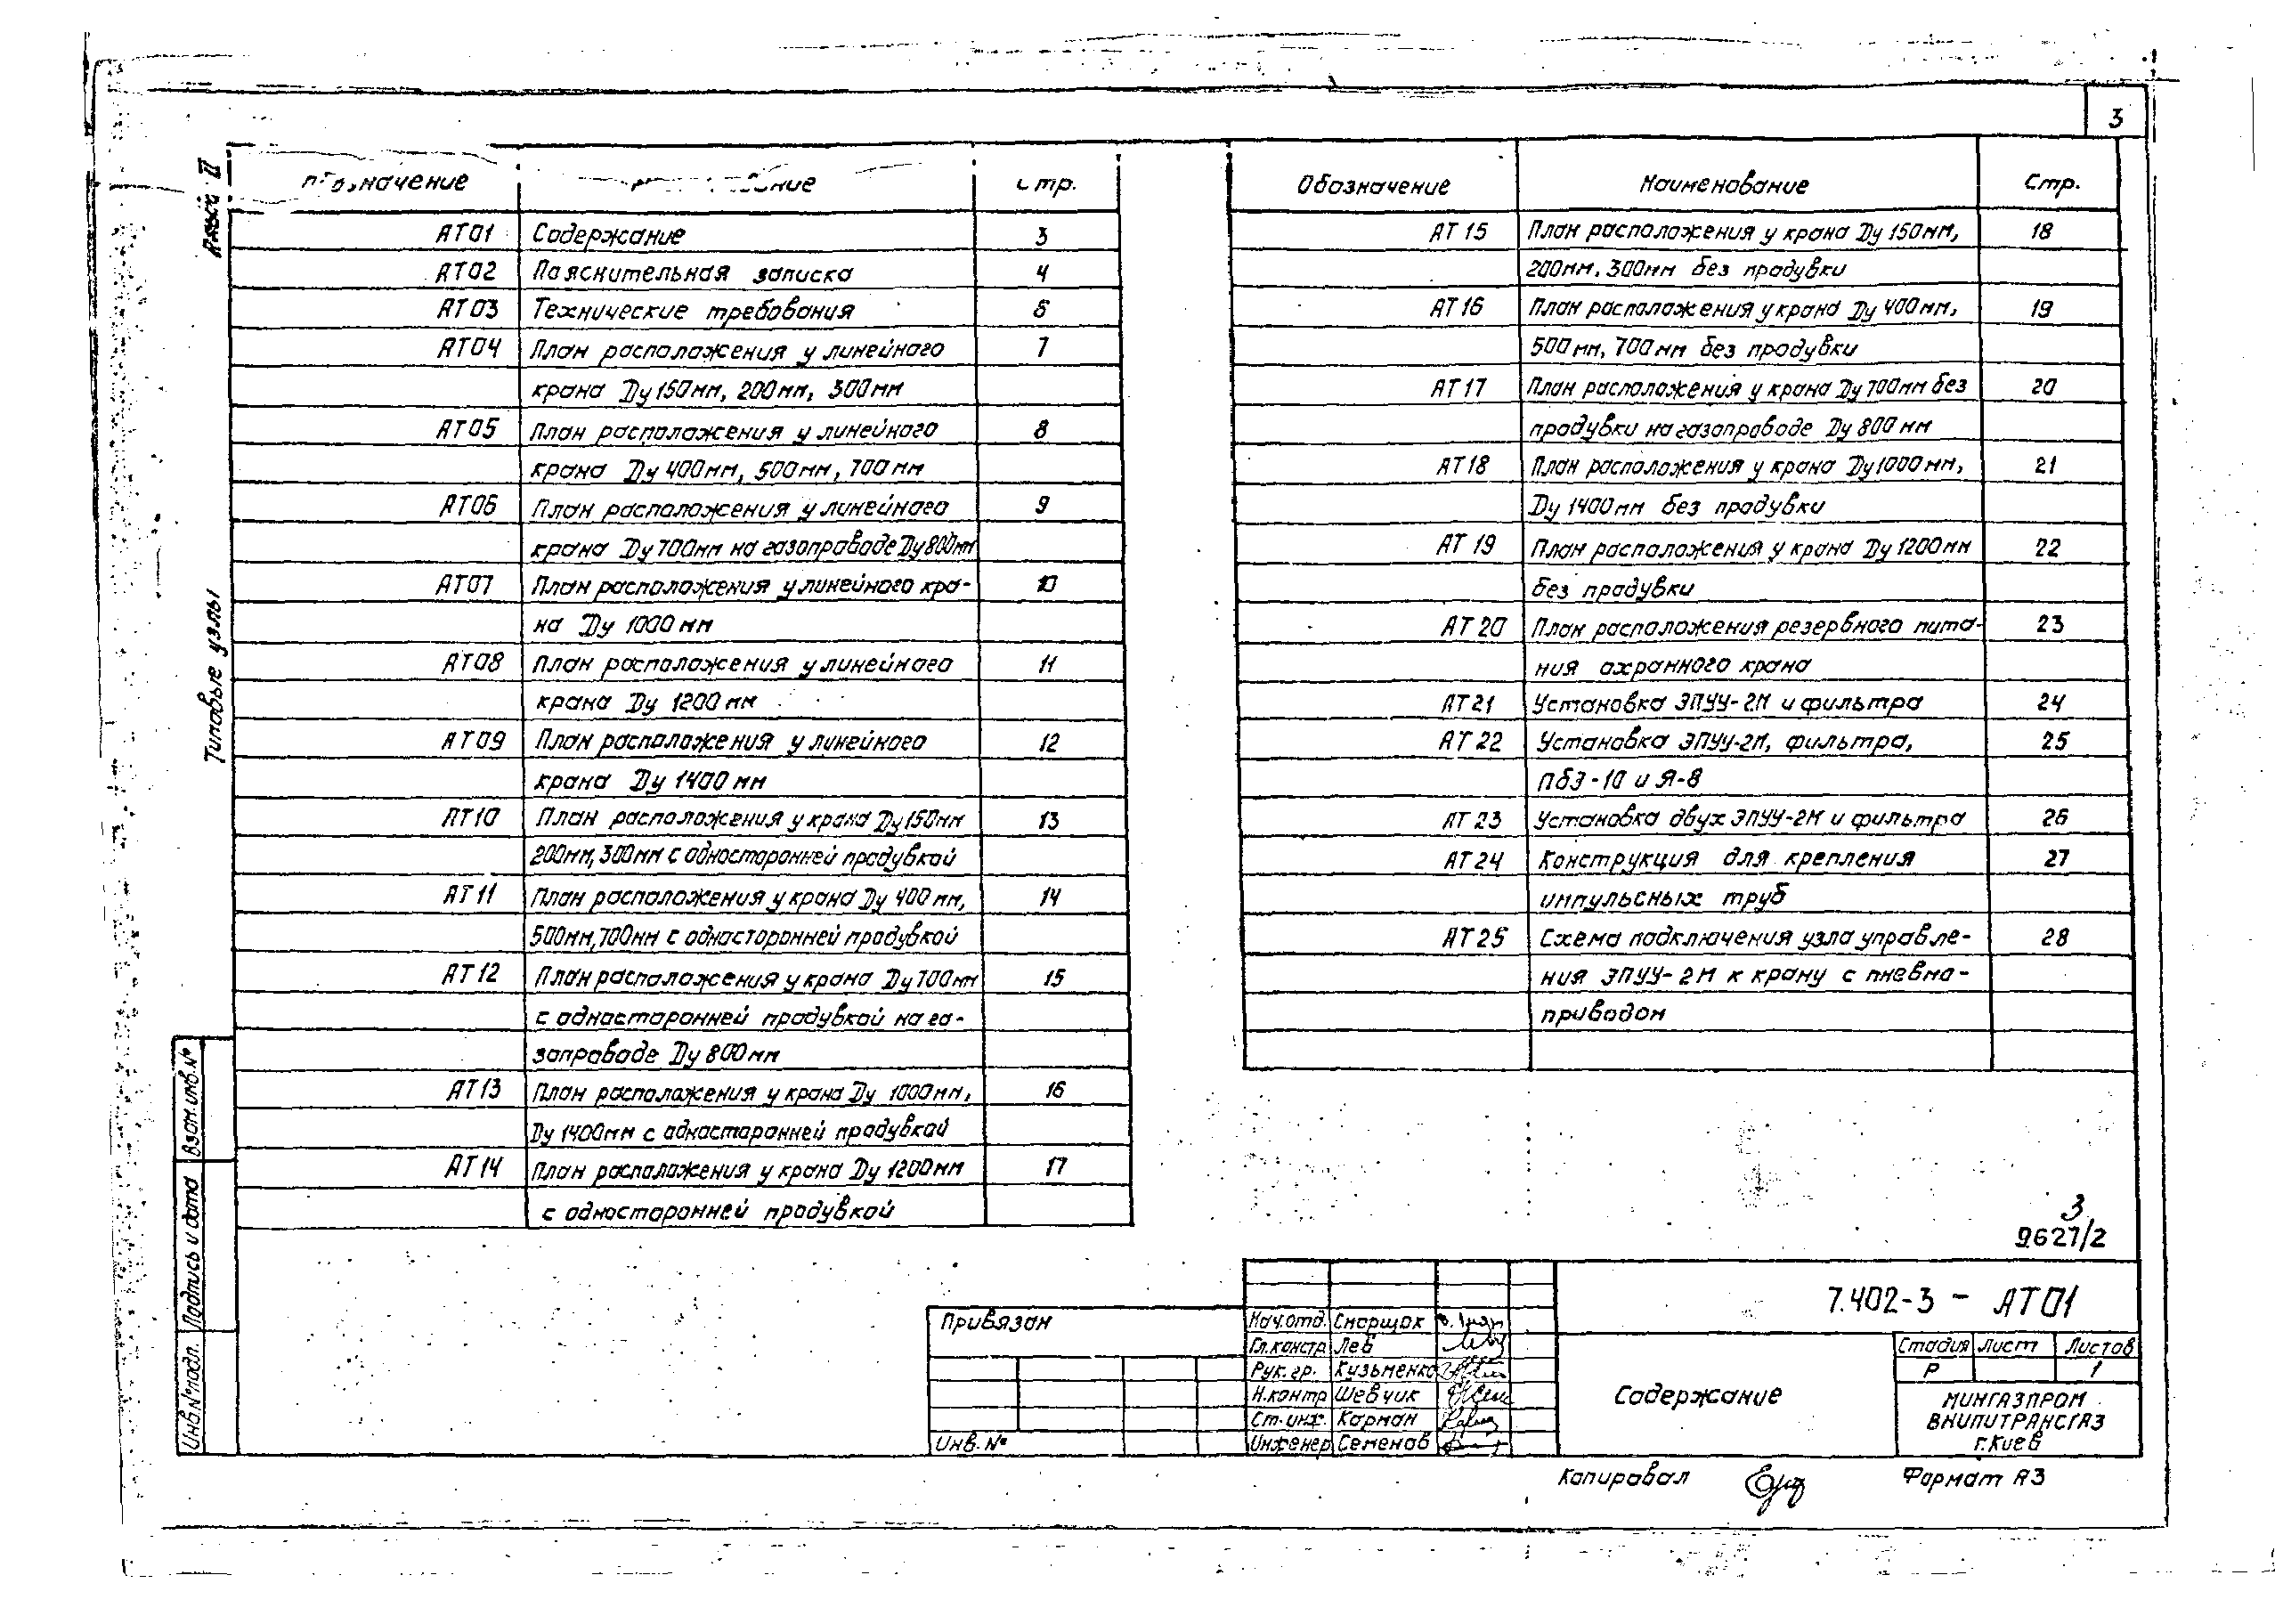 3
Альбом II
Типовые узлы
Обозначение Наименование Стр.
АТ01 Содержание 3
АТ02 Пояснительная записка 4
АТ03 Технические требования 6
АТ04 План расположения у линейного 7
крана Ду 150мм, 200мм, 300мм
АТ05 План расположения у линейного 8
крана Ду 400мм, 500мм, 700мм
АТ06 План расположения у линейного 9
крана Ду 700мм на газопроводе Ду 800мм
АТ07 План расположения у линейного кра- 10
на Ду 1000мм
АТ08 План расположения у линейного 11
крана Ду 1200мм
АТ09 План расположения у линейного 12
крана Ду 1400мм
АТ10 План расположения у крана Ду 150мм 13
200мм, 300мм с односторонней продувкой
АТ11 План расположения у крана Ду 400мм, 14
500мм, 700мм с односторонней продувкой
АТ12 План расположения у крана Ду 700мм 15
с односторонней продувкой на га-
зопроводе Ду 800мм
АТ13 План расположения у крана Ду 1000мм, 16
Ду 1400мм с односторонней продувкой
АТ14 План расположения у крана Ду 1200мм 17
с односторонней продувкой
Обозначение Наименование Стр.
АТ15 План расположения у крана Ду 150мм, 18
200мм, 300мм без продувки
АТ16 План расположения у крана Ду 400мм, 19
500мм, 700мм без продувки
АТ17 План расположения у крана Ду 700мм без 20
продувки на газопроводе Ду 800мм
АТ18 План расположения у крана Ду 1000мм, 21
Ду 1400мм без продувки
АТ19 План расположения у крана Ду 1200мм 22
без продувки
АТ20 План расположения резервного пита- 23
ния охранного крана
АТ21 Установка ЭПУУ-2М и фильтра 24
АТ22 Установка ЭПУУ-2М, фильтра, 25
ПБЗ-10 и Я-8
АТ23 Установка двух ЭПУУ-2М и фильтра 26
АТ24 Конструкция для крепления 27
импульсных труб
АТ25 Схема подключения узла управле- 28
ния ЭПУУ-2М к крану с пневмо-
приводом
3
9627/2
Взам. инв. №
Подпись и дата
Инв. № подл.
Привязан
Инв. №
Нач. отд. Сморщок
Гл. констр. Лев
Рук. гр. Кузьменко
Н. контр. Шевчик
Ст. инж. Карман
Инженер Семенов
7.402-3 - АТ01
Содержание
Стадия Лист Листов
Р 1
МИНГАЗПРОМ
ВНИПИТРАНСГАЗ
г. Киев
Копировал
Формат А3